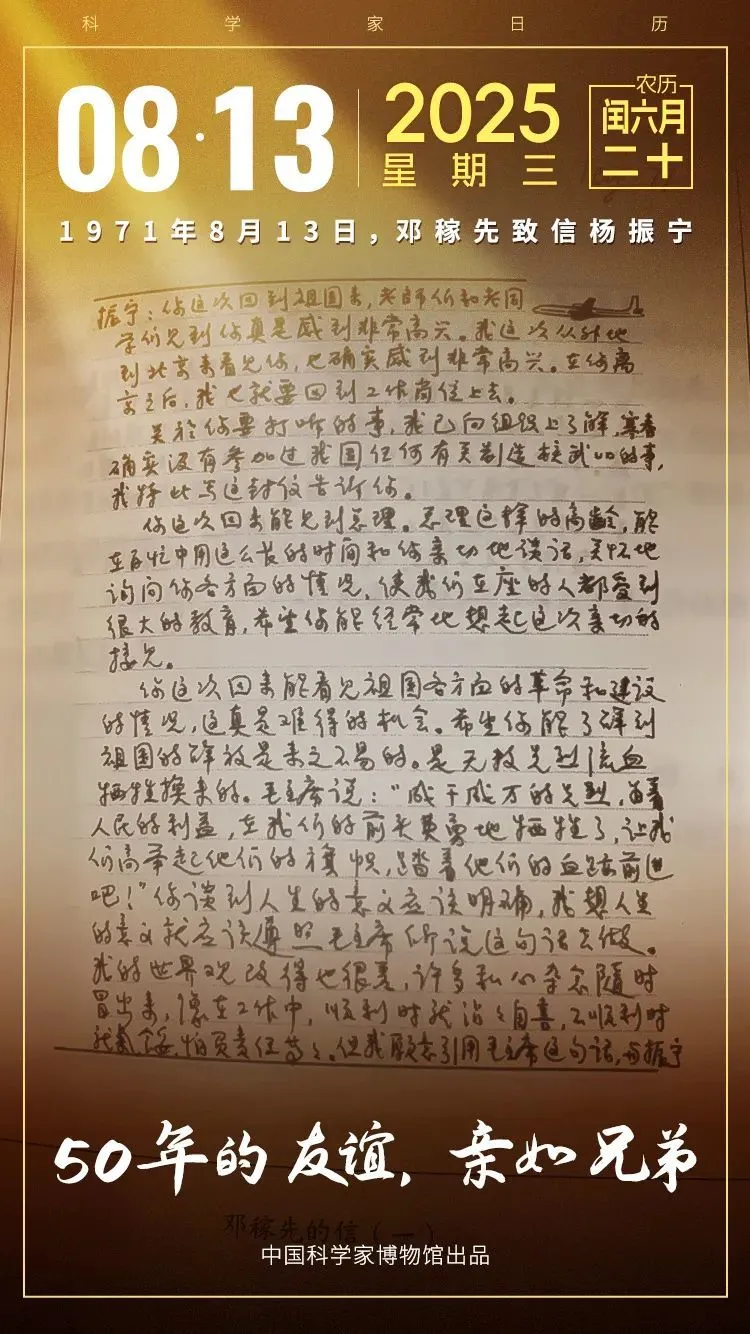 科学家日历
08·13
2025
星期三
农历
闰六月
二十
1971年8月13日，邓稼先致信杨振宁
振宁：你这次回到祖国来，老師们和老同
学们见到你真是感到非常高兴。我这次从外地
到北京来看见你，也确实感到非常高兴。在你离
京之后，我也就要回到工作岗位上去。
关於你要打听的事，我已向组织上了解，寒春
确实没有参加过我国任何有关制造核武口的事，
我特此写这封信告诉你。
你这次回来能见到总理。总理这样的高龄，能
在百忙中用这么长的时间和你亲切地谈话，关怀地
询问你各方面的情况，使我们在座的人都受到
很大的教育，希望你能经常地想起这次亲切的
接见。
你这次回来能看见祖国各方面的革命和建设
的情况，这真是难得的机会。希望你能了解到
祖国的解放是来之不易的。是无数先烈流血
牺牲换来的。毛主席说：“成千成万的先烈，为着
人民的利益，在我们的前头英勇地牺牲了，让我
们高举起他们的旗帜，踏着他们的血跡前进
吧！”你谈到人生的意义应该明确，我想人生
的意义就应该遵照毛主席所说这句话去做。
我的世界观改得也很差，许多私心杂念随时
冒出来，像在工作中，顺利时就沾沾自喜，不顺利时
就氣馁，怕负责任等等。但我愿意引用毛主席这句话，与振宁
50年的友谊，亲如兄弟
邓稼先的信（一）
中国科学家博物馆出品